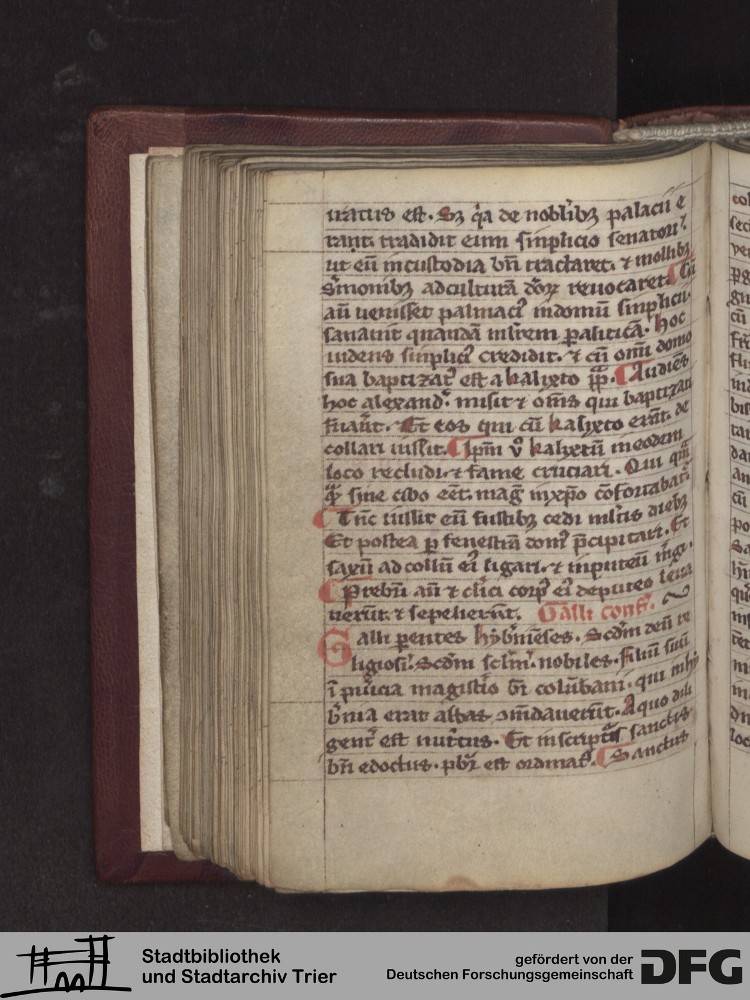 uratus est. Sꝫ q̄a de nobl̄ibꝫ palacii e
rant. tradidit eum simplicio senatori.
ut eū incustodia bn̄ tractaret. ⁊ mollibꝫ
s̄monibꝫ adculturā deoꝝ reuocaret. Cū
aū uenisset palmaci᷒ indomū simplicii.
sanauit quandā ml̄rem paliticā. hoc
uidens simplici᷒ credidit. ⁊ cū om̄i domo
sua baptizat᷒ est a kalixto pp̄. Audiēs
hoc alexand᷒. misit ⁊ om̄s qui baptizati
fuāt. Et eos qui cū kalixto erāt. de
collari iussit. Ip̄m v̊ kalixtū ineodem
loco recludi. ⁊ fame cruciari. Qui qm̄
sine cibo eēt. mag᷒ inxp̄o cōfortabat᷒.
Tūc iussit eū fustibꝫ cedi ml̄tis diebꝫ
Et postea ꝑ fenestrā dom᷒ p̄cipitari. Et
saxū ad collū ei᷒ ligari. ⁊ inputeū m̄gi.
Prebr̄i aū ⁊ cl̄ici corp᷒ ei᷒ deputeo leua
uerūt. ⁊ sepelierūt. Galli conf᷒.
Galli parentes hyb̄nienses. Scdm̄ deū re
ligiosi. Scdm̄ sclm̄. nobiles. filiū suū
ī puicia magist̄io bt̄i colūbani. qui inhy
b̄nia erat abbas ꝯmdauerūt. A quo dili
gent᷒ est nutritus. Et inscriptis sanctis
bn̄ edoctus. pbr̄ est ordinat᷒. Sanctus
Stadtbibliothek
und Stadtarchiv Trier
gefördert von der
Deutschen Forschungsgemeinschaft
DFG